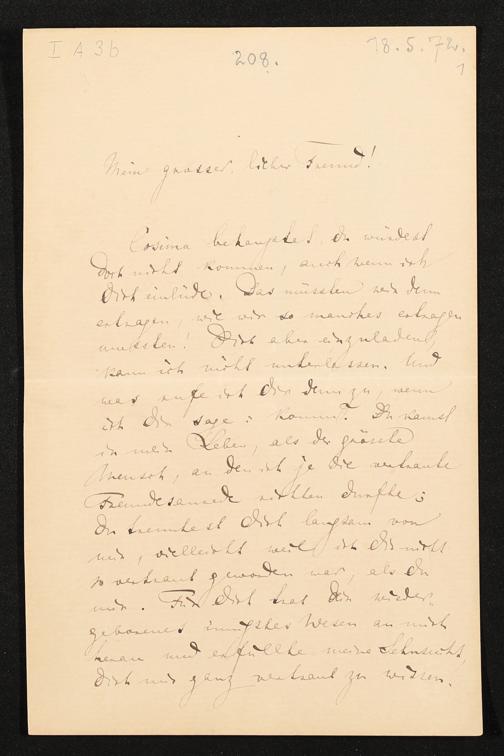 I A 3b
208.
18.5.72.
1
Mein grosser, lieber Freund!
Cosima behauptet, du würdest
doch nicht kommen, auch wenn ich
dich einlüde. Das müssten wir denn
ertragen, wie wir so manches ertragen
mussten! Dich aber einzuladen,
kann ich nicht unterlassen. Und
was rufe ich dir denn zu, wenn
ich dir sage: komm? Du kamst
in mein Leben, als der grösste
Mensch, an den ich je die vertraute
Freundesanrede richten durfte;
du trenntest dich langsam von
mir, vielleicht weil ich dir nicht
so vertraut geworden war, als du
mir. Für dich trat dein wieder-
geborenes innigstes Wesen an mich
heran und erfüllte meine Sehnsucht,
dich mir ganz vertraut zu wissen.